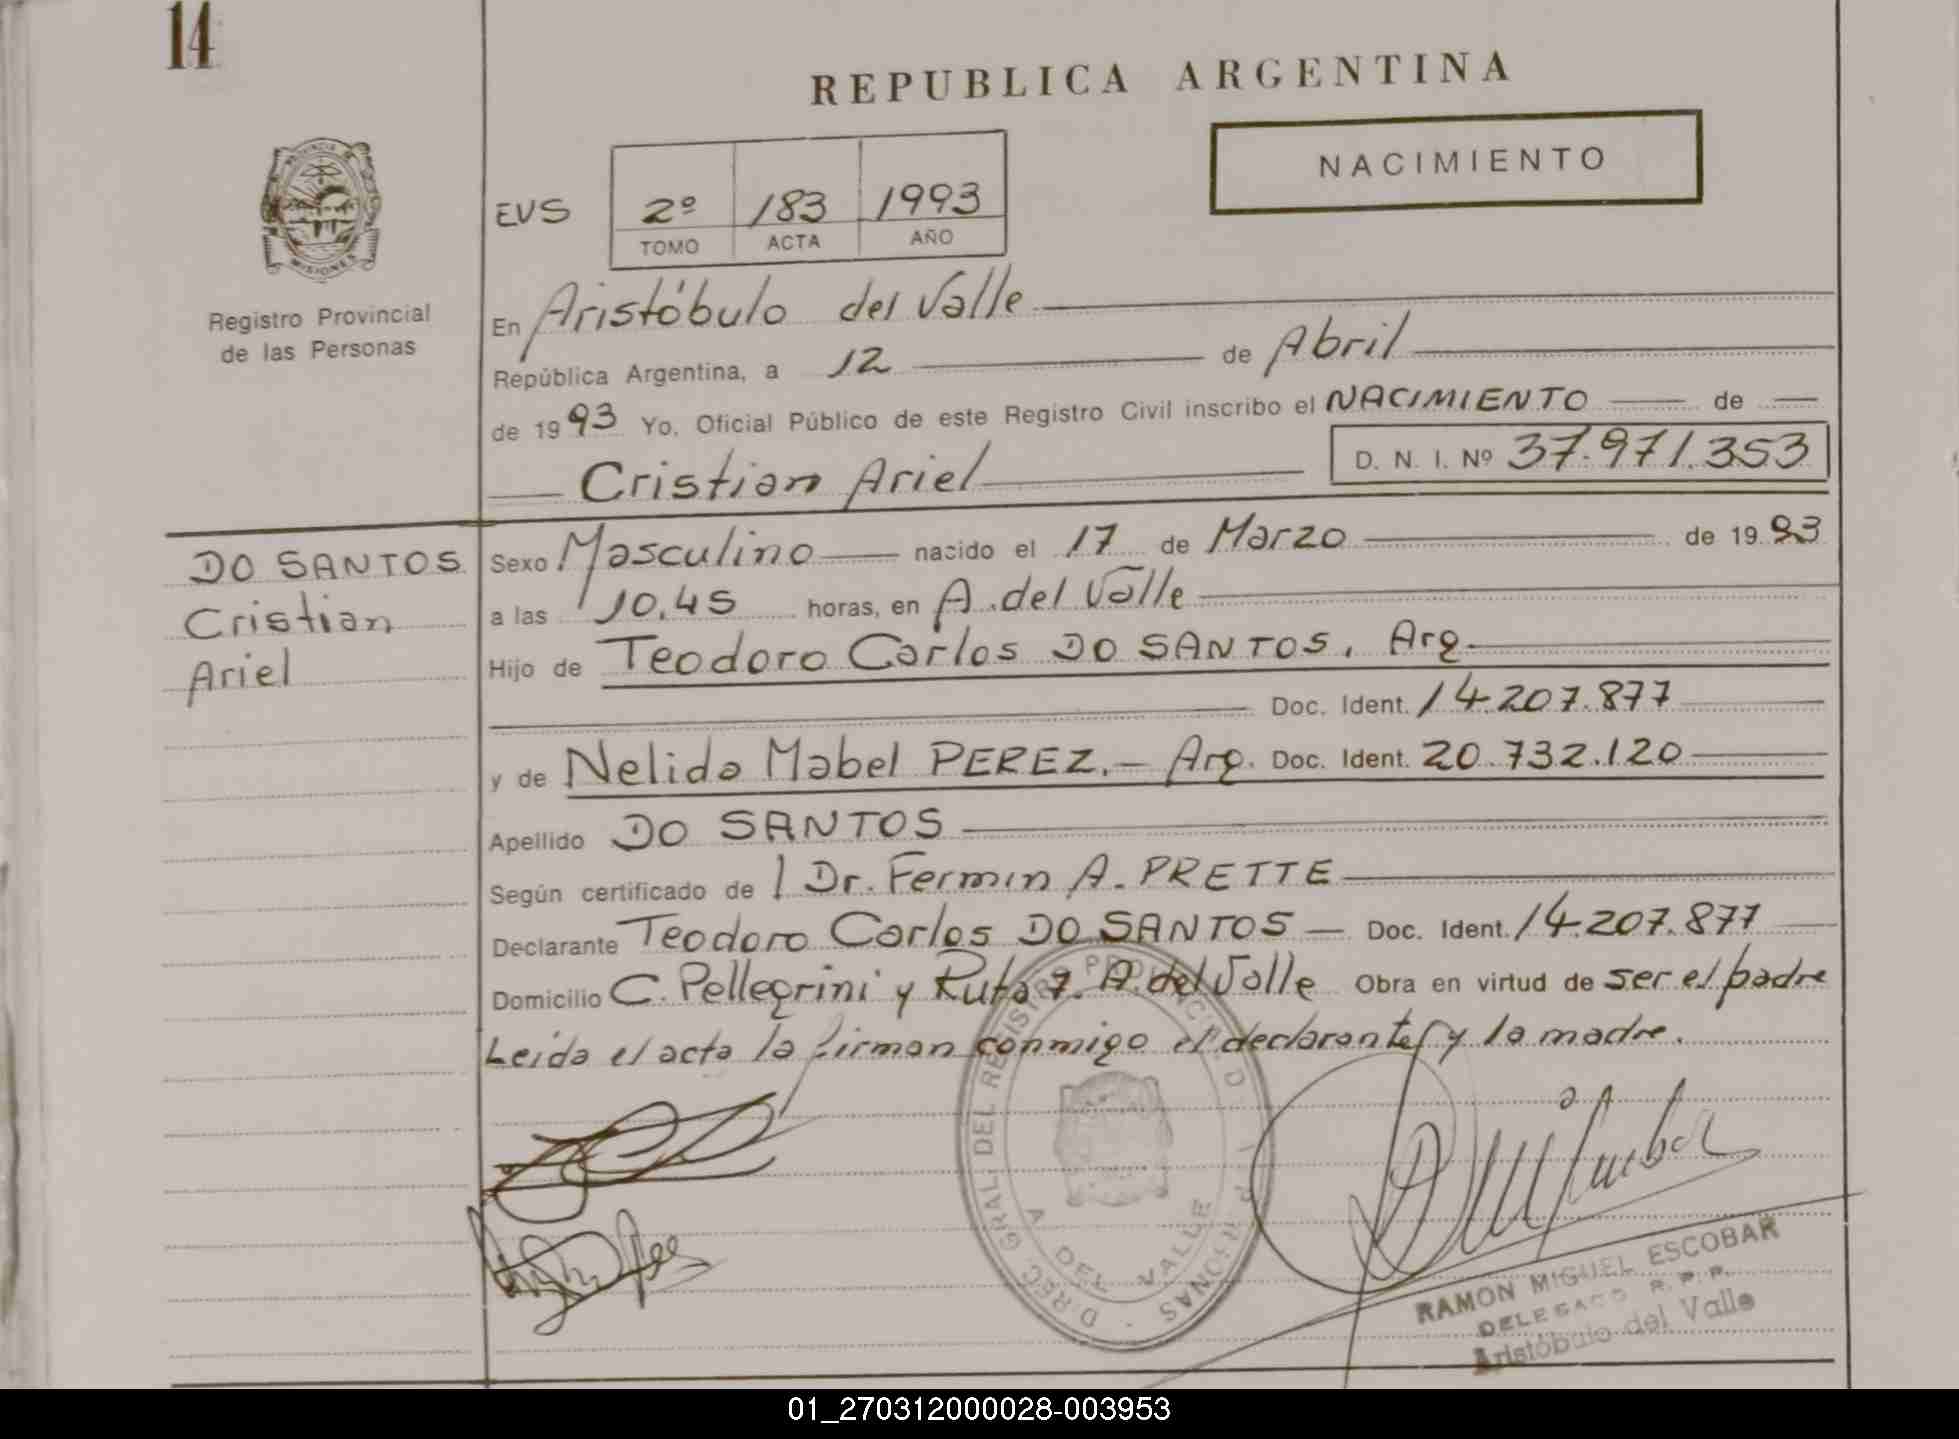 14
REPUBLICA ARGENTINA
NACIMIENTO
EVS
2º 183 1993
TOMO ACTA AÑO
PROVINCIA DE
MISIONES
Registro Provincial
de las Personas
En Aristóbulo del Valle
República Argentina, a 12 de Abril
de 1993 Yo, Oficial Público de este Registro Civil inscribo el NACIMIENTO de
Cristian Ariel D. N. I. Nº 37.971.353
DO SANTOS
Cristian
Ariel
Sexo Masculino nacido el 17 de Marzo de 1993
a las 10,45 horas, en A. del Valle
Hijo de Teodoro Carlos DO SANTOS. Arg.
Doc. Ident. 14.207.877
y de Nelida Mabel PEREZ.- Arg. Doc. Ident. 20.732.120
Apellido DO SANTOS
Según certificado de Dr. Fermin A. PRETTE
Declarante Teodoro Carlos DO SANTOS - Doc. Ident. 14.207.877
Domicilio C. Pellegrini y Ruta 7. A. del Valle Obra en virtud de ser el padre
Leida el acta la firman conmigo el declarante y la madre.
A DEL VALLE
RAMON MIGUEL ESCOBAR
DELEGADO R. P. P.
Aristóbulo del Valle
01_270312000028-003953